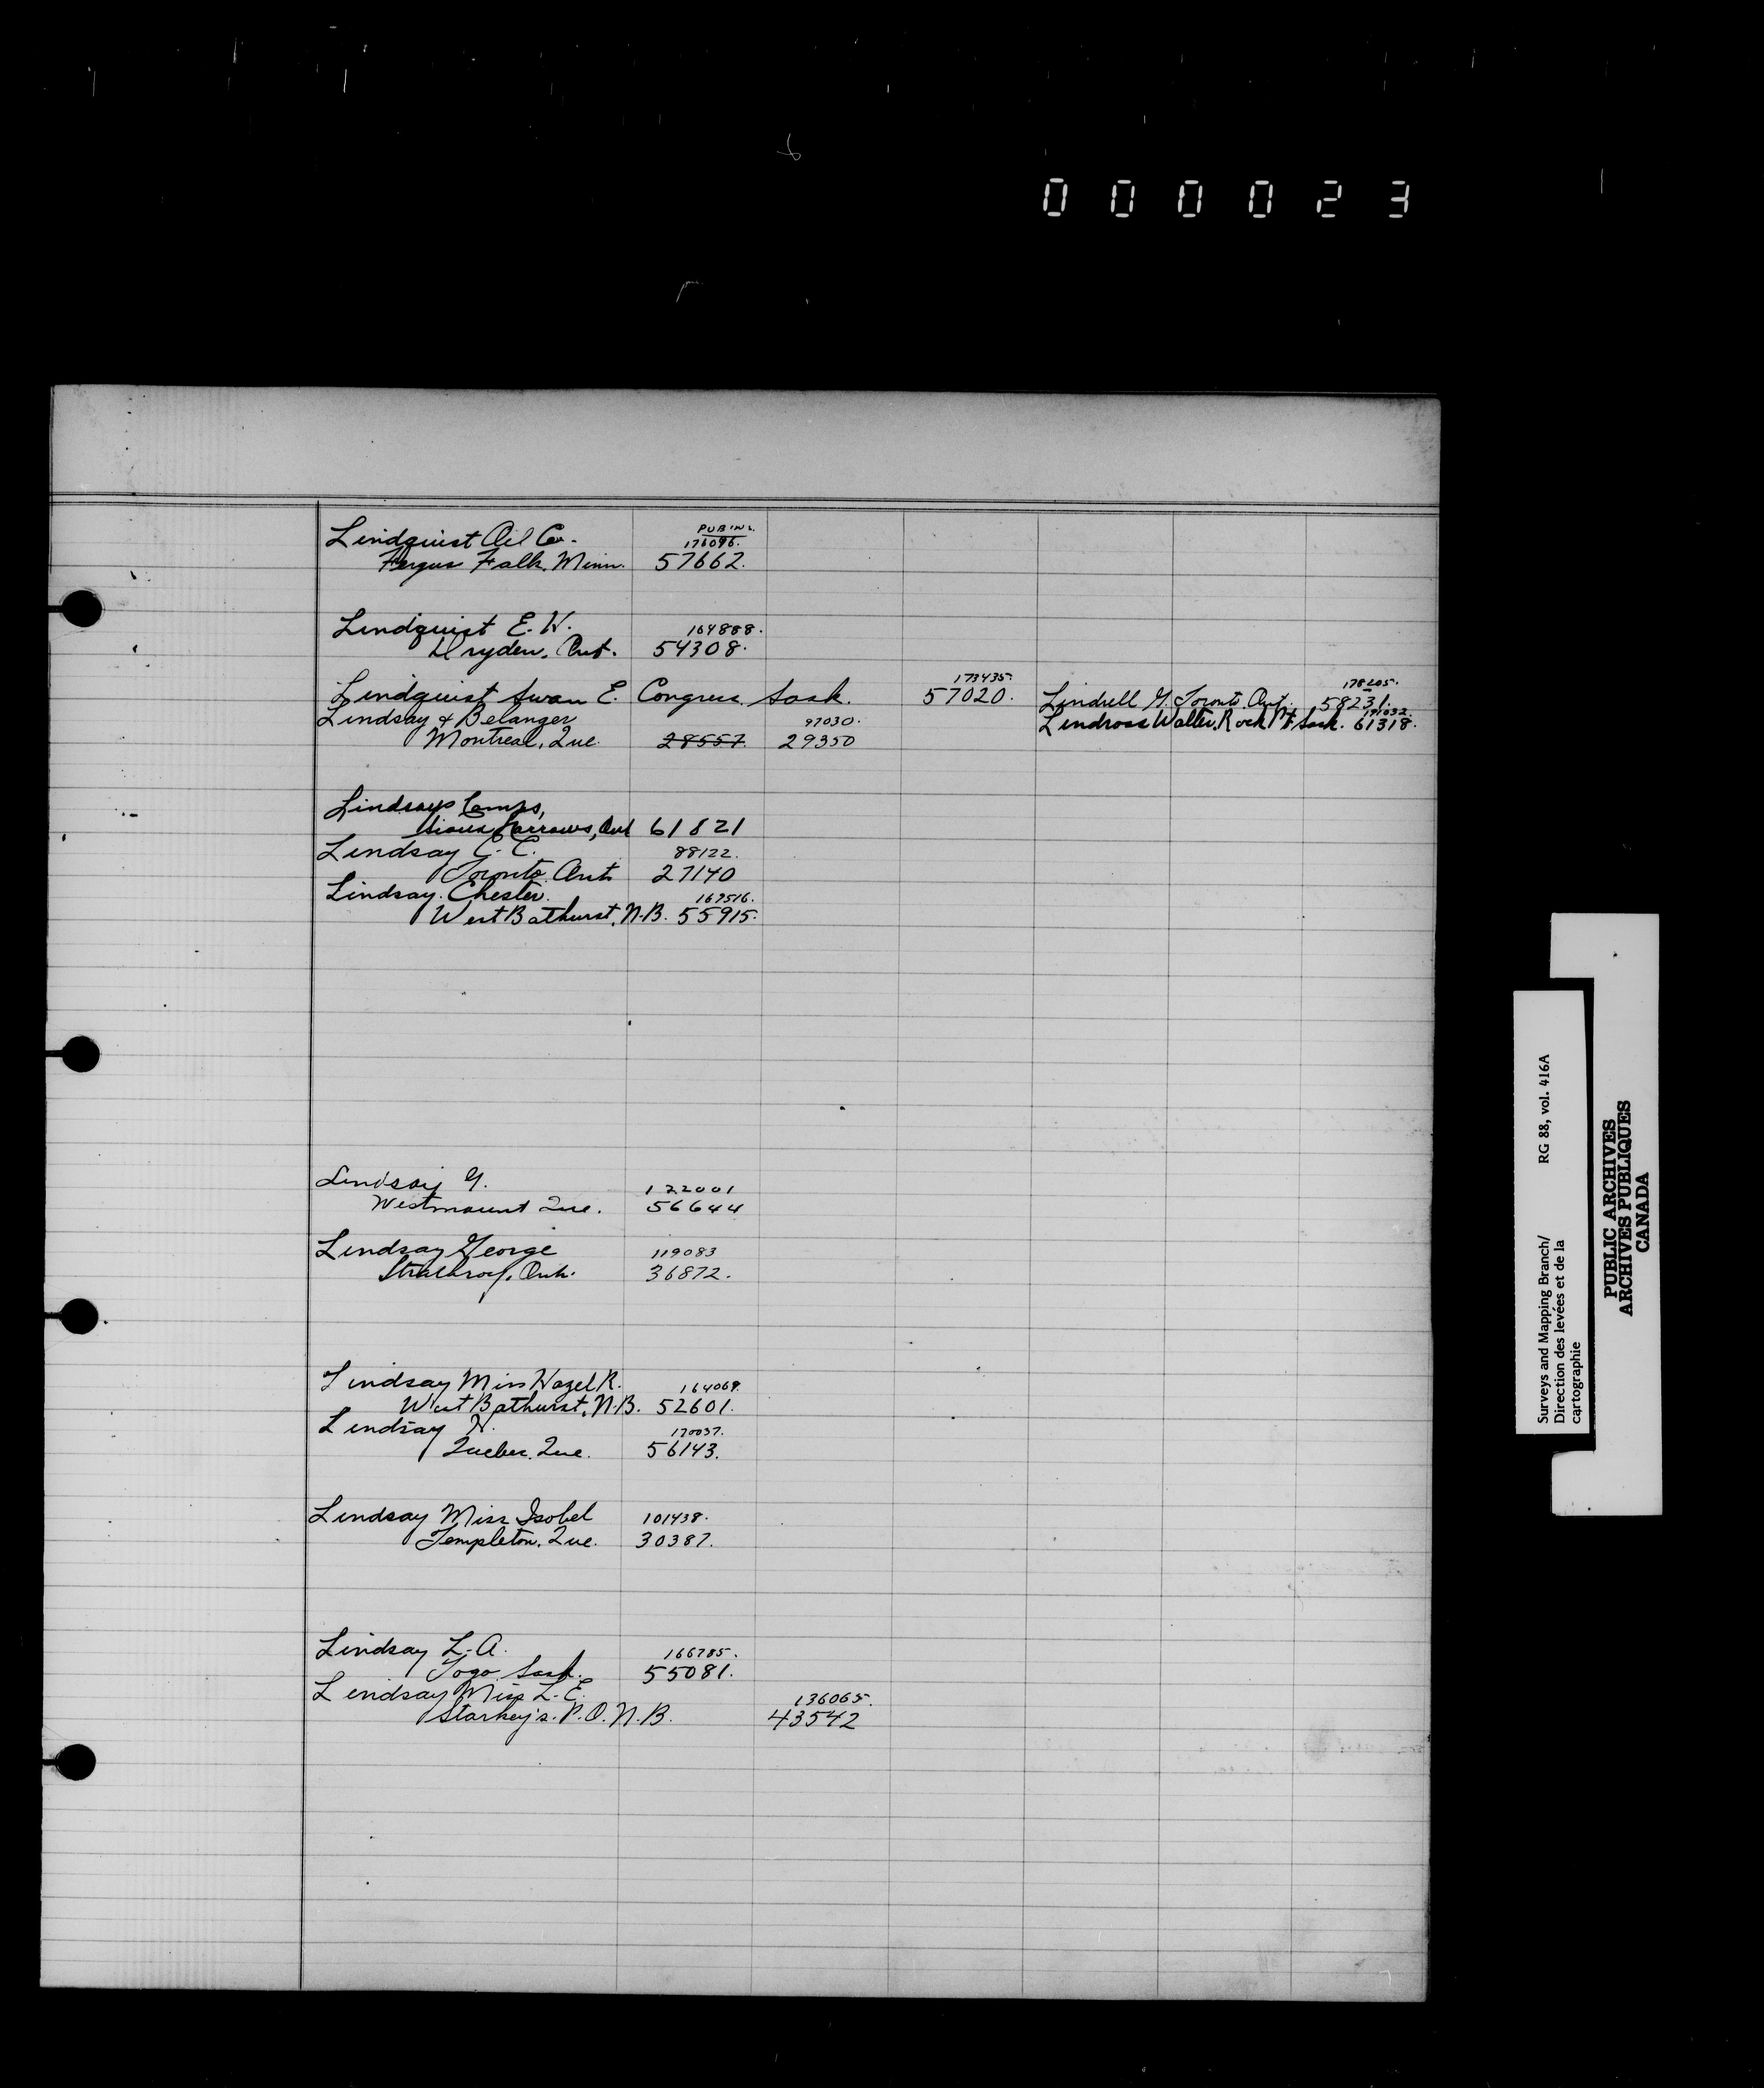 000023
PUB IN L.
Lindquist Oil Co. 176096.
Fergus Falls, Minn. 57662.
Lindquist E. W. 164888.
Dryden, Ont. 54308.
173435. 178205.
Lindquist Swan E. Congress, Sask. 57020. Lindsell G. Toronto, Ont. 58231.
Lindsay & Belanger 97030. Lindross Walter, Rock Pt Sask. 61318.
Montreal, Que. 28557. 29350
Lindsays Camps,
Sioux Narrows, Ont 61821
Lindsay C. C. 88122.
Toronto, Ont. 27140
Lindsay. Chester. 167516.
West Bathurst, N.B. 55915.
Lindsay G. 122001
Westmount Que. 56644
Lindsay George 119083
Strathroy, Ont. 36872.
Lindsay Miss Hazel R. 164069.
West Bathurst, N.B. 52601.
Lindsay H. 170037.
Quebec, Que. 56143.
Lindsay Miss Isobel 101438.
Templeton, Que. 30387.
Lindsay L. A. 166785.
Togo, Sask. 55081.
Lindsay Miss L. E. 136065.
Starkey's. P.O. N.B. 43542
Surveys and Mapping Branch/ RG 88, vol. 416A
Direction des levées et de la
cartographie
PUBLIC ARCHIVES
ARCHIVES PUBLIQUES
CANADA